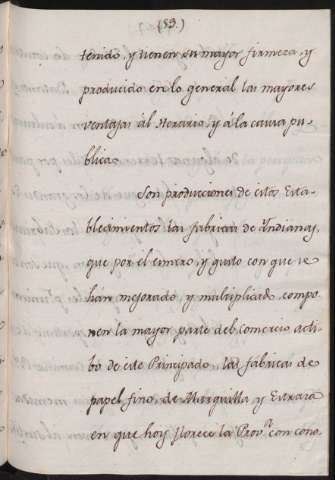 (53.)
tenido, y tienen su mayor firmeza, y
producido en lo general las mayores
ventajas al Herario, y á la causa pu-
blica.
Son producciones de estos Esta-
blecimientos las fabricas de Yndianas,
que por el esmero, y gusto con que se
hán mejorado, y multiplicado compo-
nen la mayor parte del comercio acti-
bo de este Principado, las fabricas de
papel fino, de Marquilla y Estraza
en que hoy florece la Prov.ª con cono-